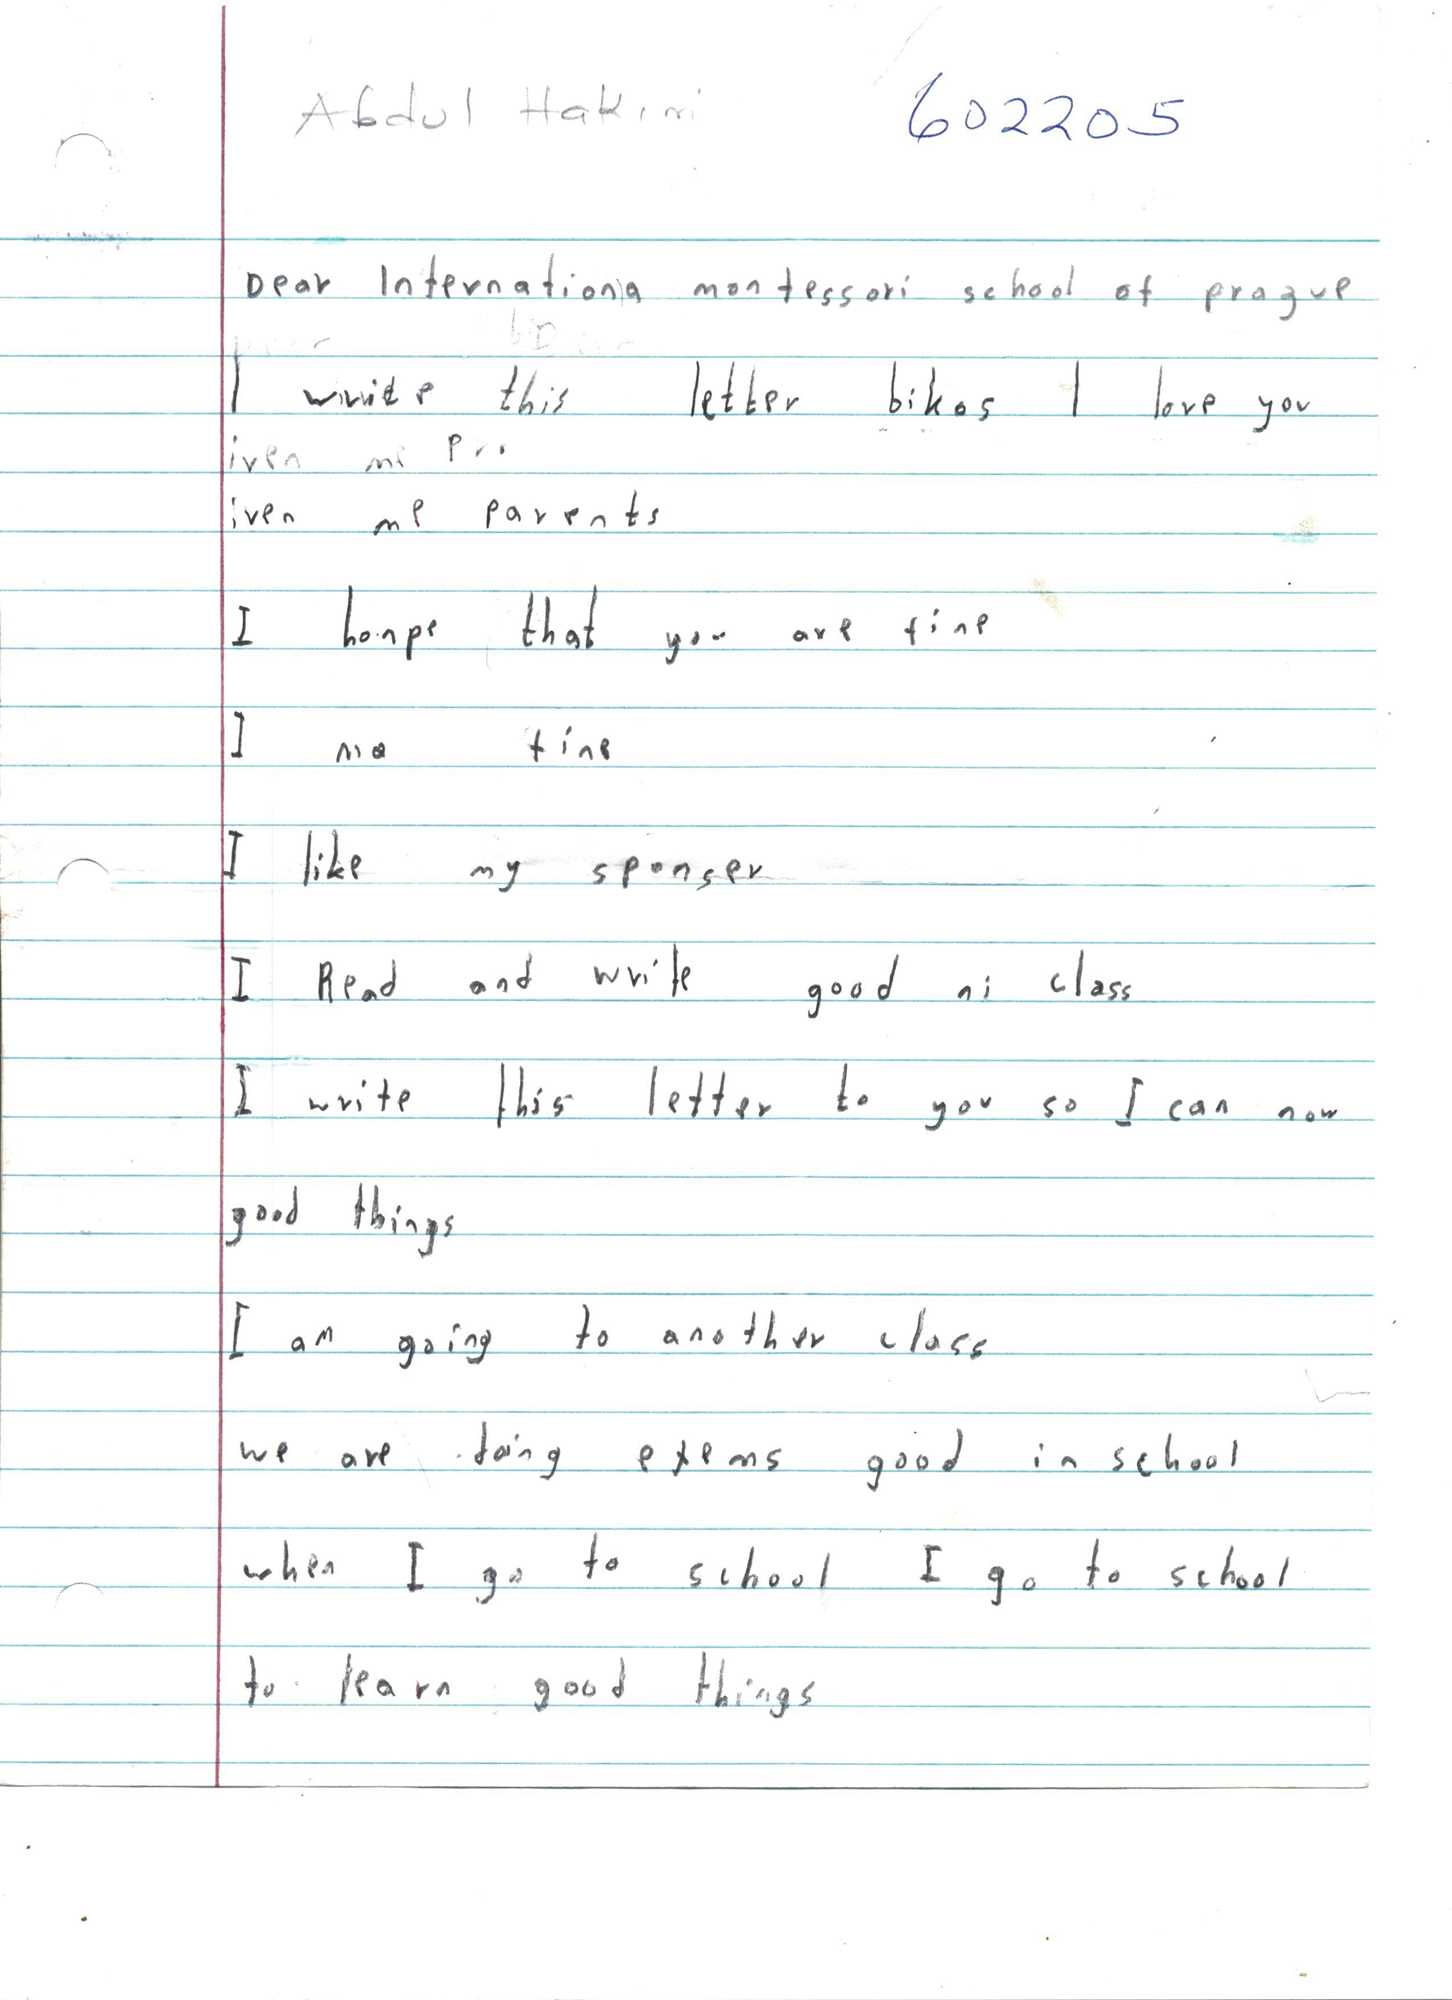 Abdul Hakimi 602205
Dear Internationa montessori school of prague
I wride this letter bikos I love you
iven mi Pr
iven me parents
I honpe that you are fine
I ma fine
I like my sponser
I Read and write good ni class
I write this letter to you so I can now
good things
I am going to another class
we are doing exems good in school
when I go to school I go to school
to learn good things